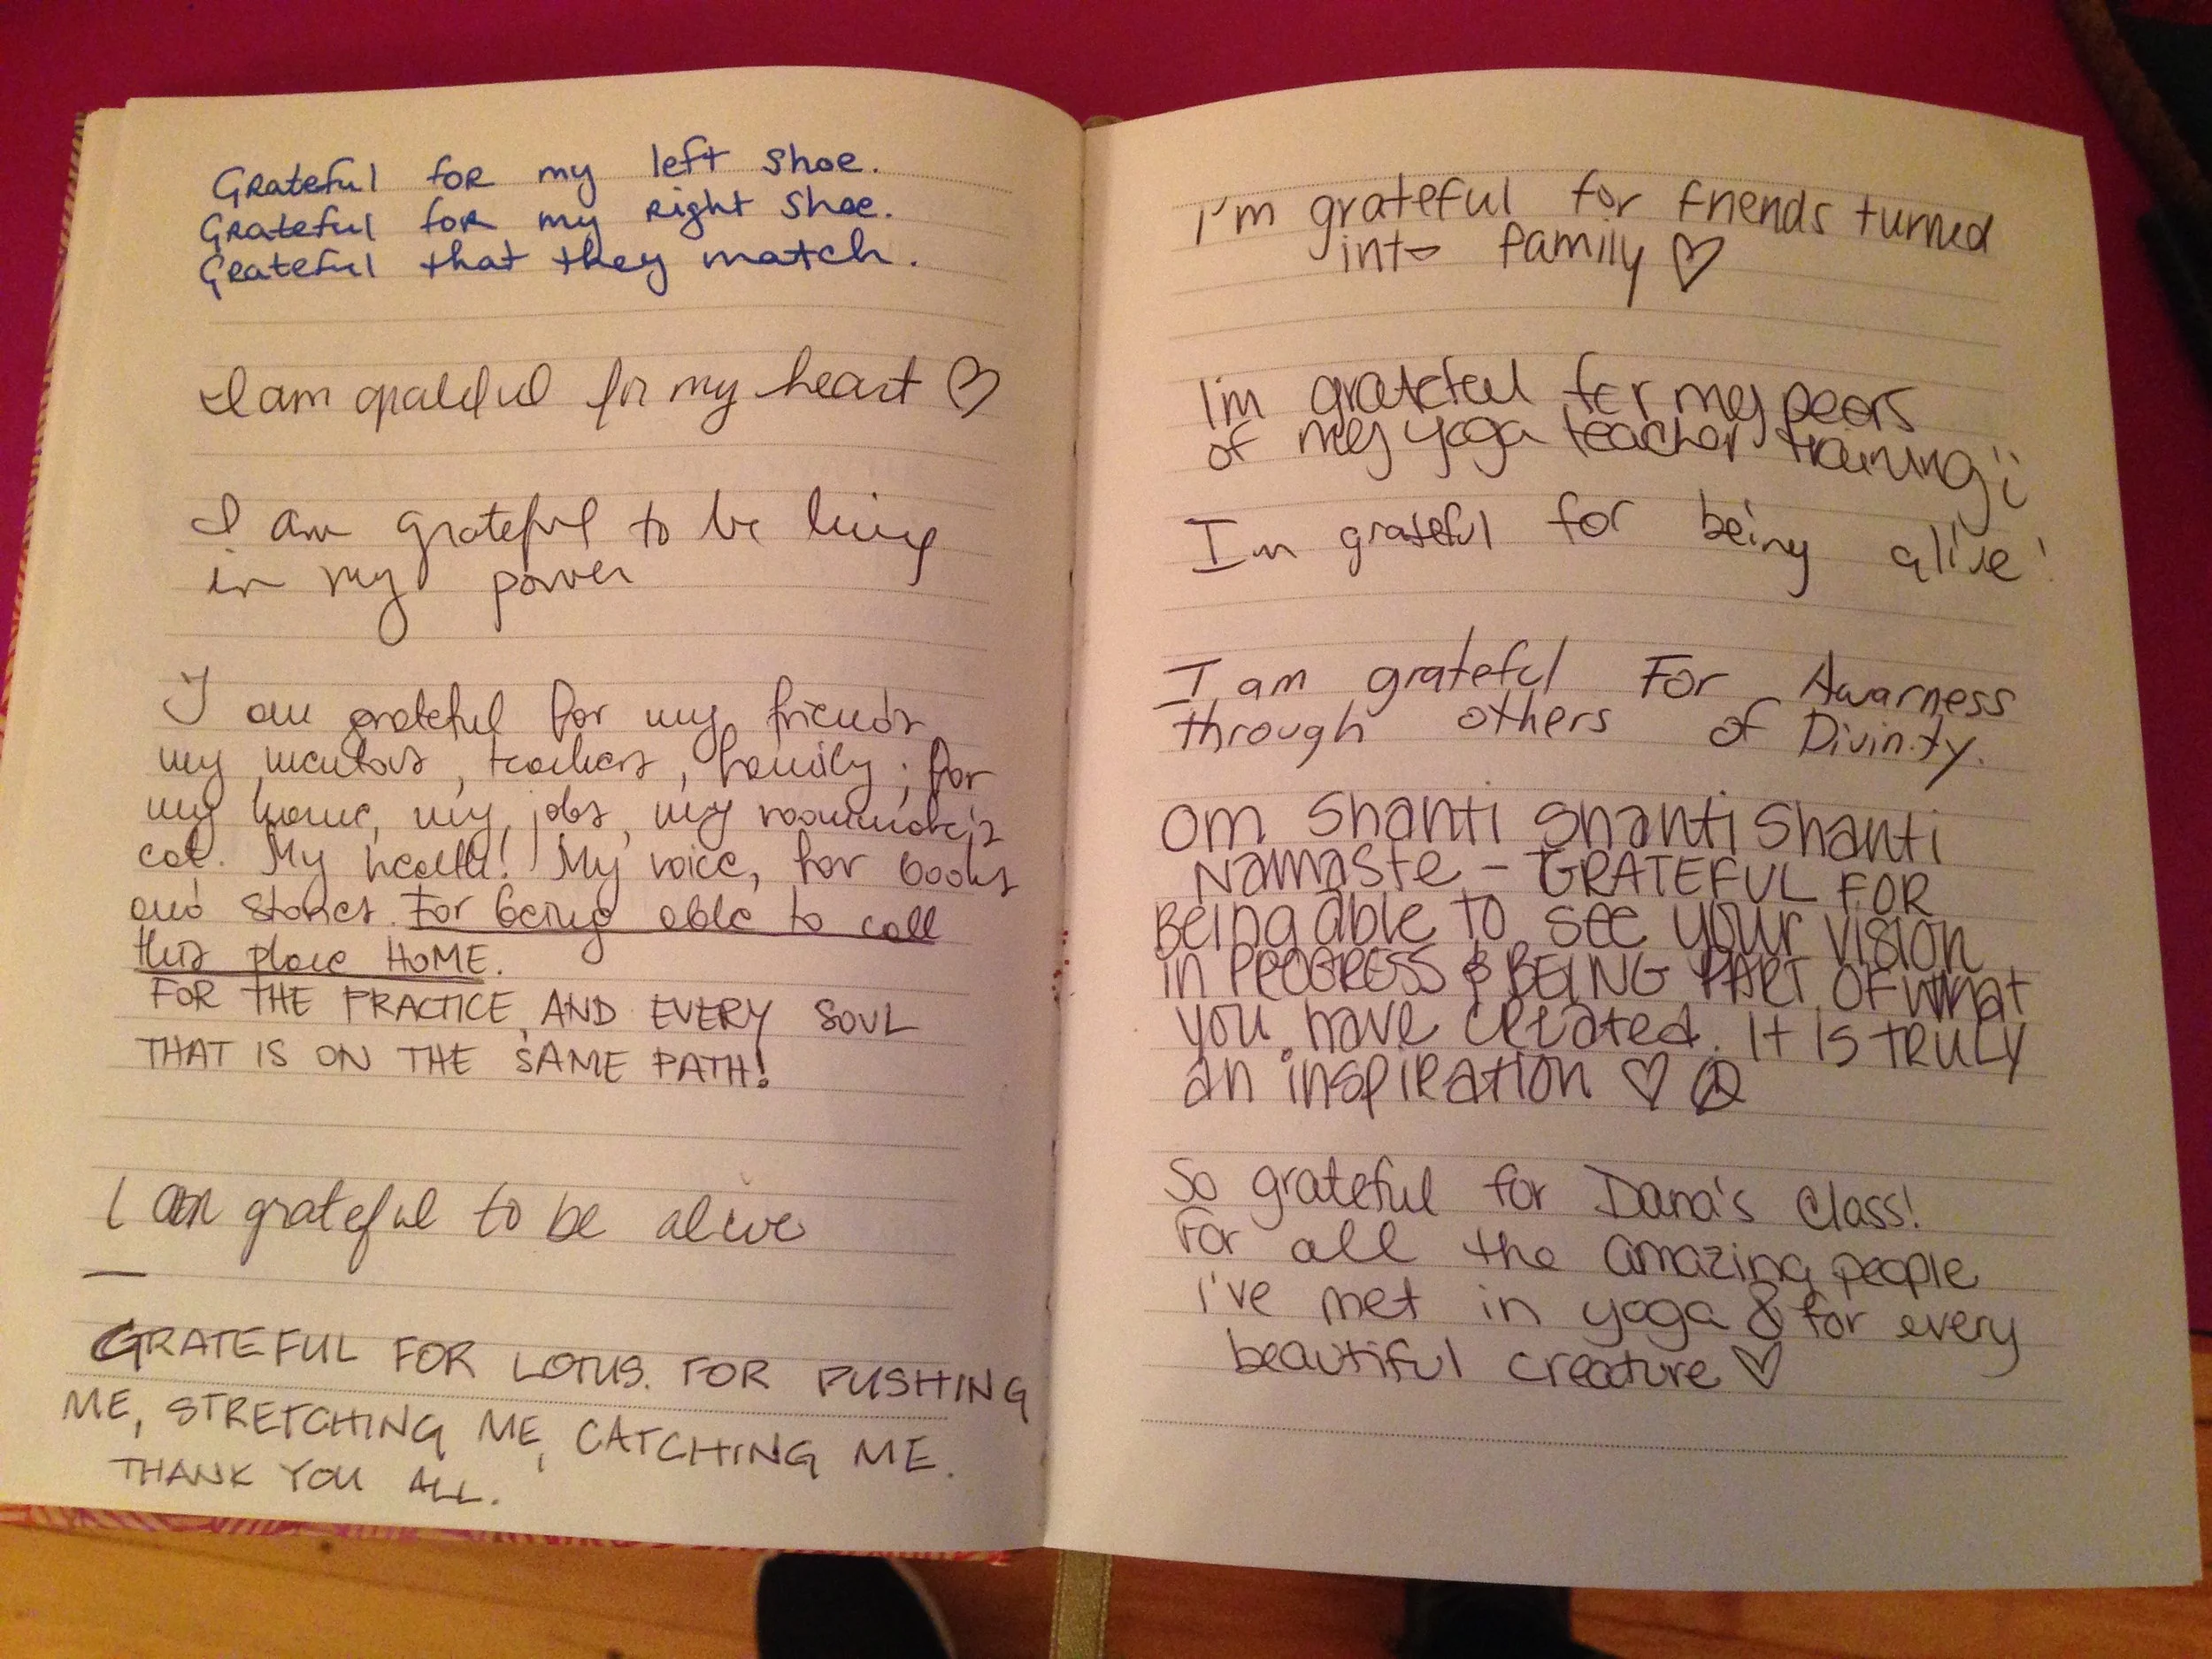 Grateful for my left shoe.
Grateful for my right shoe.
Grateful that they match.
I am grateful for my heart ♡
I am grateful to be living
in my power
I am grateful for my friends
my mentors, teachers, family; for
my home, my jobs, my roommate's
cat. My health! My voice, for books
and stories. For being able to call
this place HOME.
FOR THE PRACTICE, AND EVERY SOUL
THAT IS ON THE SAME PATH!
I am grateful to be alive
—
GRATEFUL FOR LOTUS. FOR PUSHING
ME, STRETCHING ME, CATCHING ME.
THANK YOU ALL.
I'm grateful for friends turned
into family ♡
I'm grateful for my peers
of my yoga teacher training
Im grateful for being alive!
I am grateful For Awarness
through others of Divinity.
Om Shanti Shanti Shanti
Namaste - GRATEFUL FOR
Being able to see your vision
in PROGRESS & BEING PART OF what
you have created. It is TRULY
an inspiration ♡ ☮
So grateful for Dana's Class!
For all the amazing people
I've met in yoga & for every
beautiful creature ♡